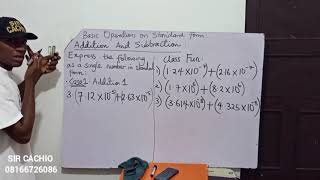 SIR CACHIO
Basic Operations on Standard form.
Addition And Subtraction
Express the following
as a single number in standard
form.
Case 1: Addition 1
3. (7.12×10⁻⁵)+(2.63×10⁻⁵)
Class Fun:
1) (1.24×10⁻⁷)+(2.16×10⁻⁷)
2) (1.7×10⁵)+(8.2×10⁵)
3) (3.614×10⁻⁸)+(4.325×10⁻⁸)
SIR CACHIO
08166726086